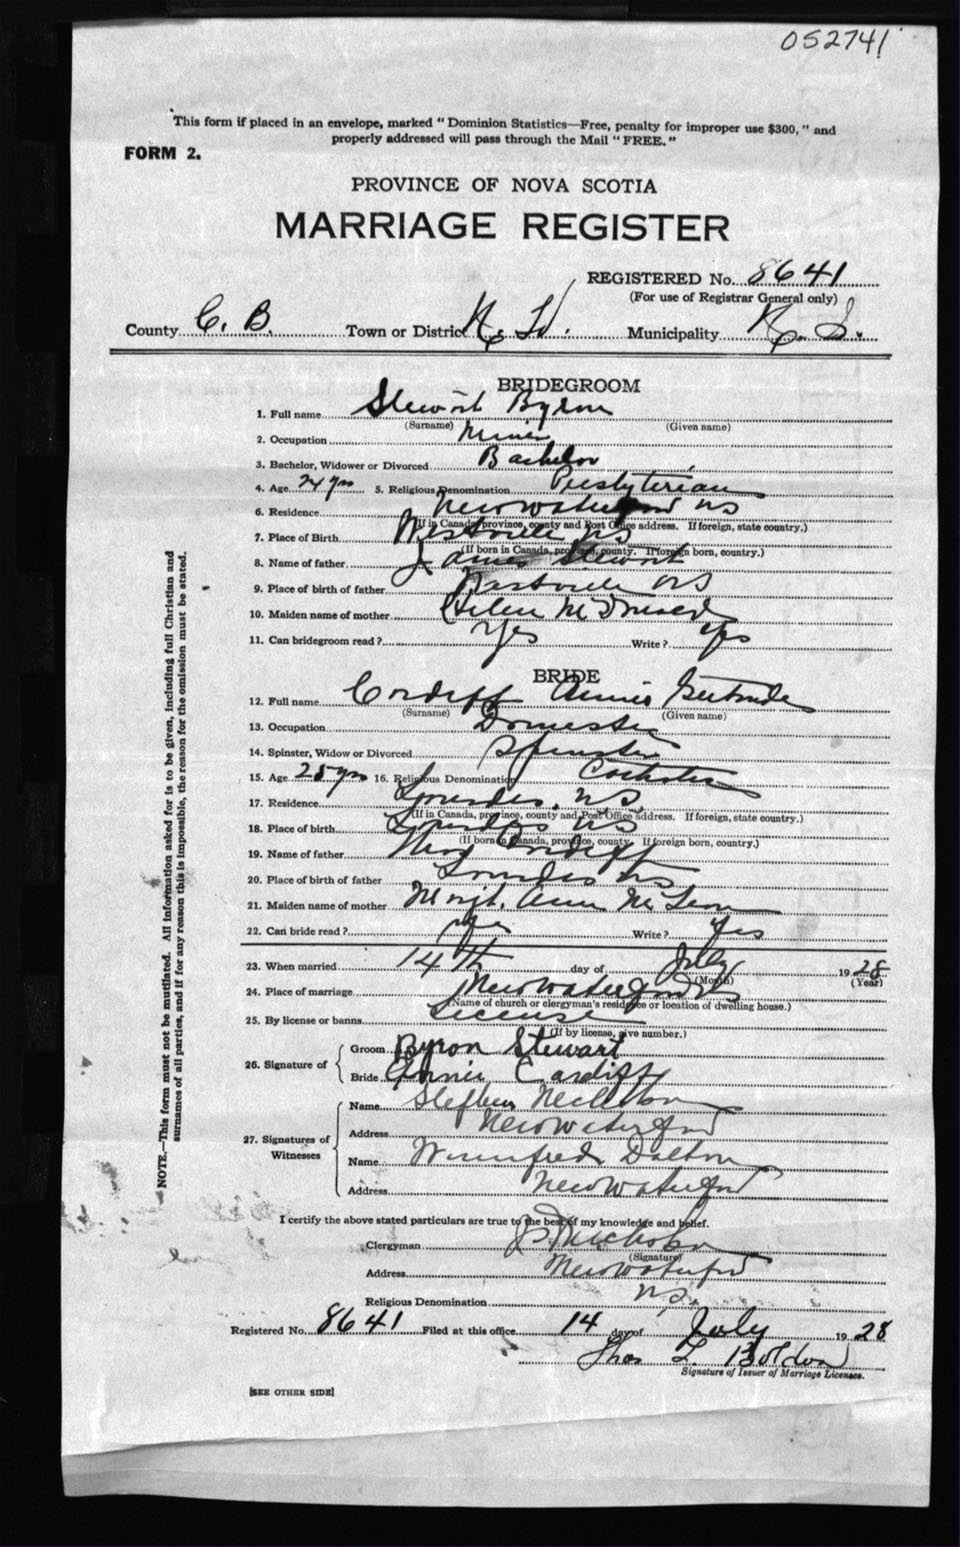 052741
This form if placed in an envelope, marked " Dominion Statistics—Free, penalty for improper use $300, " and
properly addressed will pass through the Mail " FREE. "
FORM 2.
PROVINCE OF NOVA SCOTIA
MARRIAGE REGISTER
REGISTERED No. 8641
(For use of Registrar General only)
County C. B. Town or District Municipality
BRIDEGROOM
1. Full name Stewart Byron
(Surname) (Given name)
2. Occupation Miner
3. Bachelor, Widower or Divorced Bachelor
4. Age 24 yrs 5. Religious Denomination Presbyterian
6. Residence New Waterford NS
(If in Canada, province, county and Post Office address. If foreign, state country.)
7. Place of Birth Westville NS
(If born in Canada, province, county. If foreign born, country.)
8. Name of father James Stewart
9. Place of birth of father NS
10. Maiden name of mother Helen McDonald
11. Can bridegroom read ? Yes Write ? Yes
BRIDE
12. Full name Cordiff Annie Gertrude
(Surname) (Given name)
13. Occupation Domestic
14. Spinster, Widow or Divorced Spinster
15. Age 25 yrs 16. Religious Denomination Catholic
17. Residence Lourdes, N.S.
(If in Canada, province, county and Post Office address. If foreign, state country.)
18. Place of birth Lourdes NS
(If born in Canada, province, county. If foreign born, country.)
19. Name of father Cordiff
20. Place of birth of father Lourdes NS
21. Maiden name of mother Ann
22. Can bride read ? Yes Write ? Yes
23. When married 14th day of July 1928
(Month) (Year)
24. Place of marriage New Waterford NS
(Name of church or clergyman's residence or location of dwelling house.)
25. By license or banns License
(If by license, give number.)
26. Signature of
Groom Byron Stewart
Bride Annie Cardiff
27. Signatures of Witnesses
Name Stephen
Address New Waterford
Name Winnifred Dalton
Address New Waterford
I certify the above stated particulars are true to the best of my knowledge and belief.
Clergyman
(Signature)
Address New Waterford
NS.
Religious Denomination
Registered No. 8641 Filed at this office 14 day of July 1928
Thos L. Boldon
Signature of Issuer of Marriage Licenses.
[SEE OTHER SIDE]
NOTE.—This form must not be mutilated. All information asked for is to be given, including full Christian and
surnames of all parties, and if for any reason this is impossible, the reason for the omission must be stated.